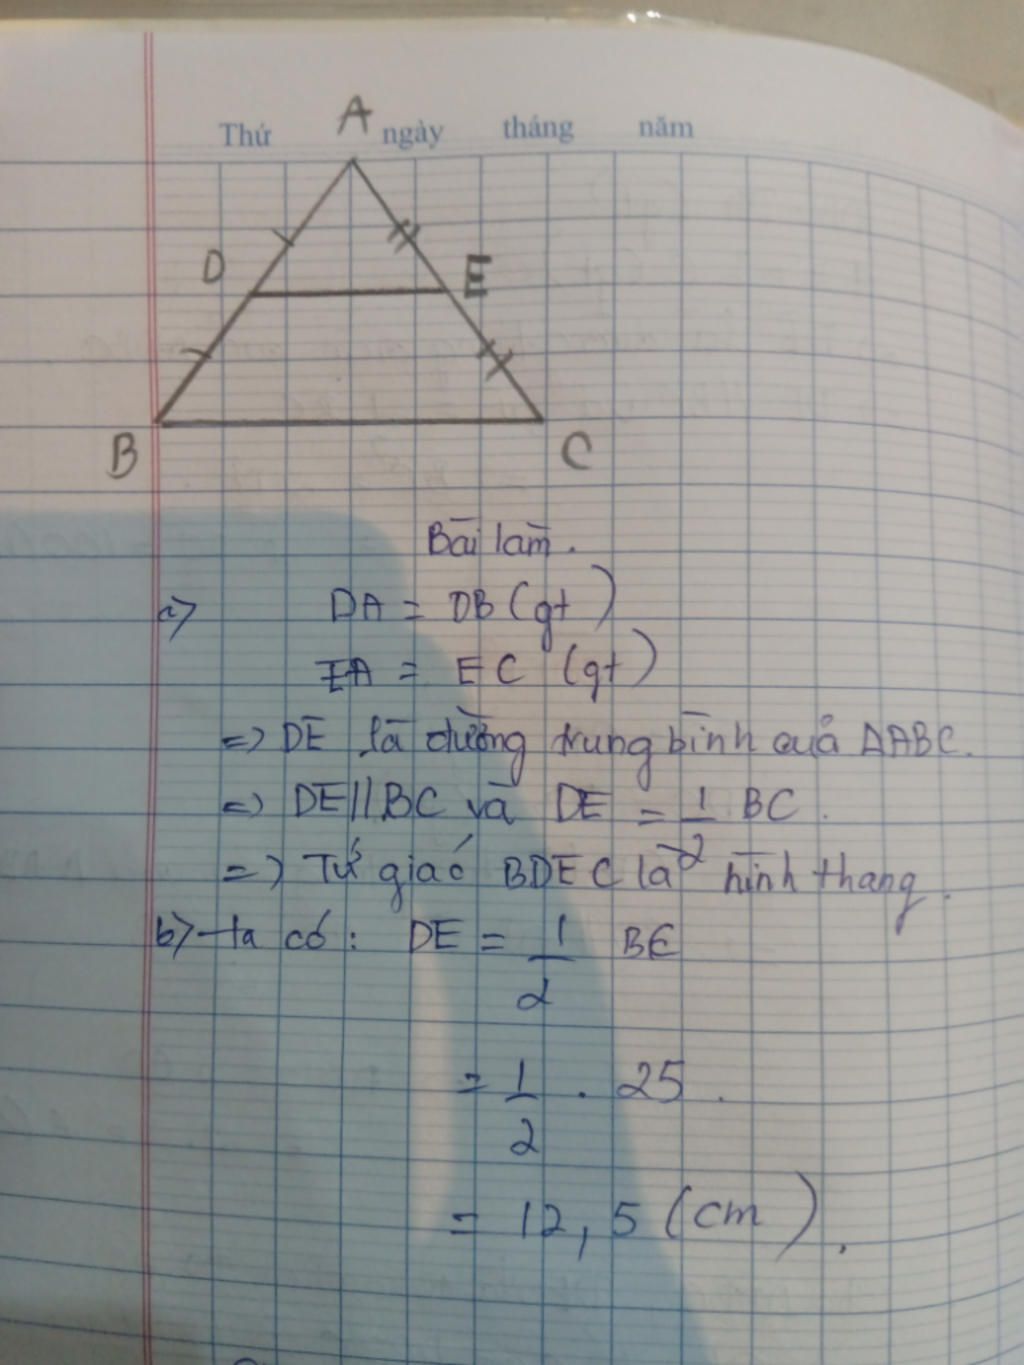 Thứ ngày tháng năm
A
D E
B C
Bài làm.
a) DA = DB (gt)
EA = EC (gt)
=> DE là đường trung bình của ΔABC.
=> DE // BC và DE = 1/2 BC.
=> Tứ giác BDEC là hình thang.
b) ta có: DE = 1/2 BC
= 1/2 . 25.
= 12,5 (cm).